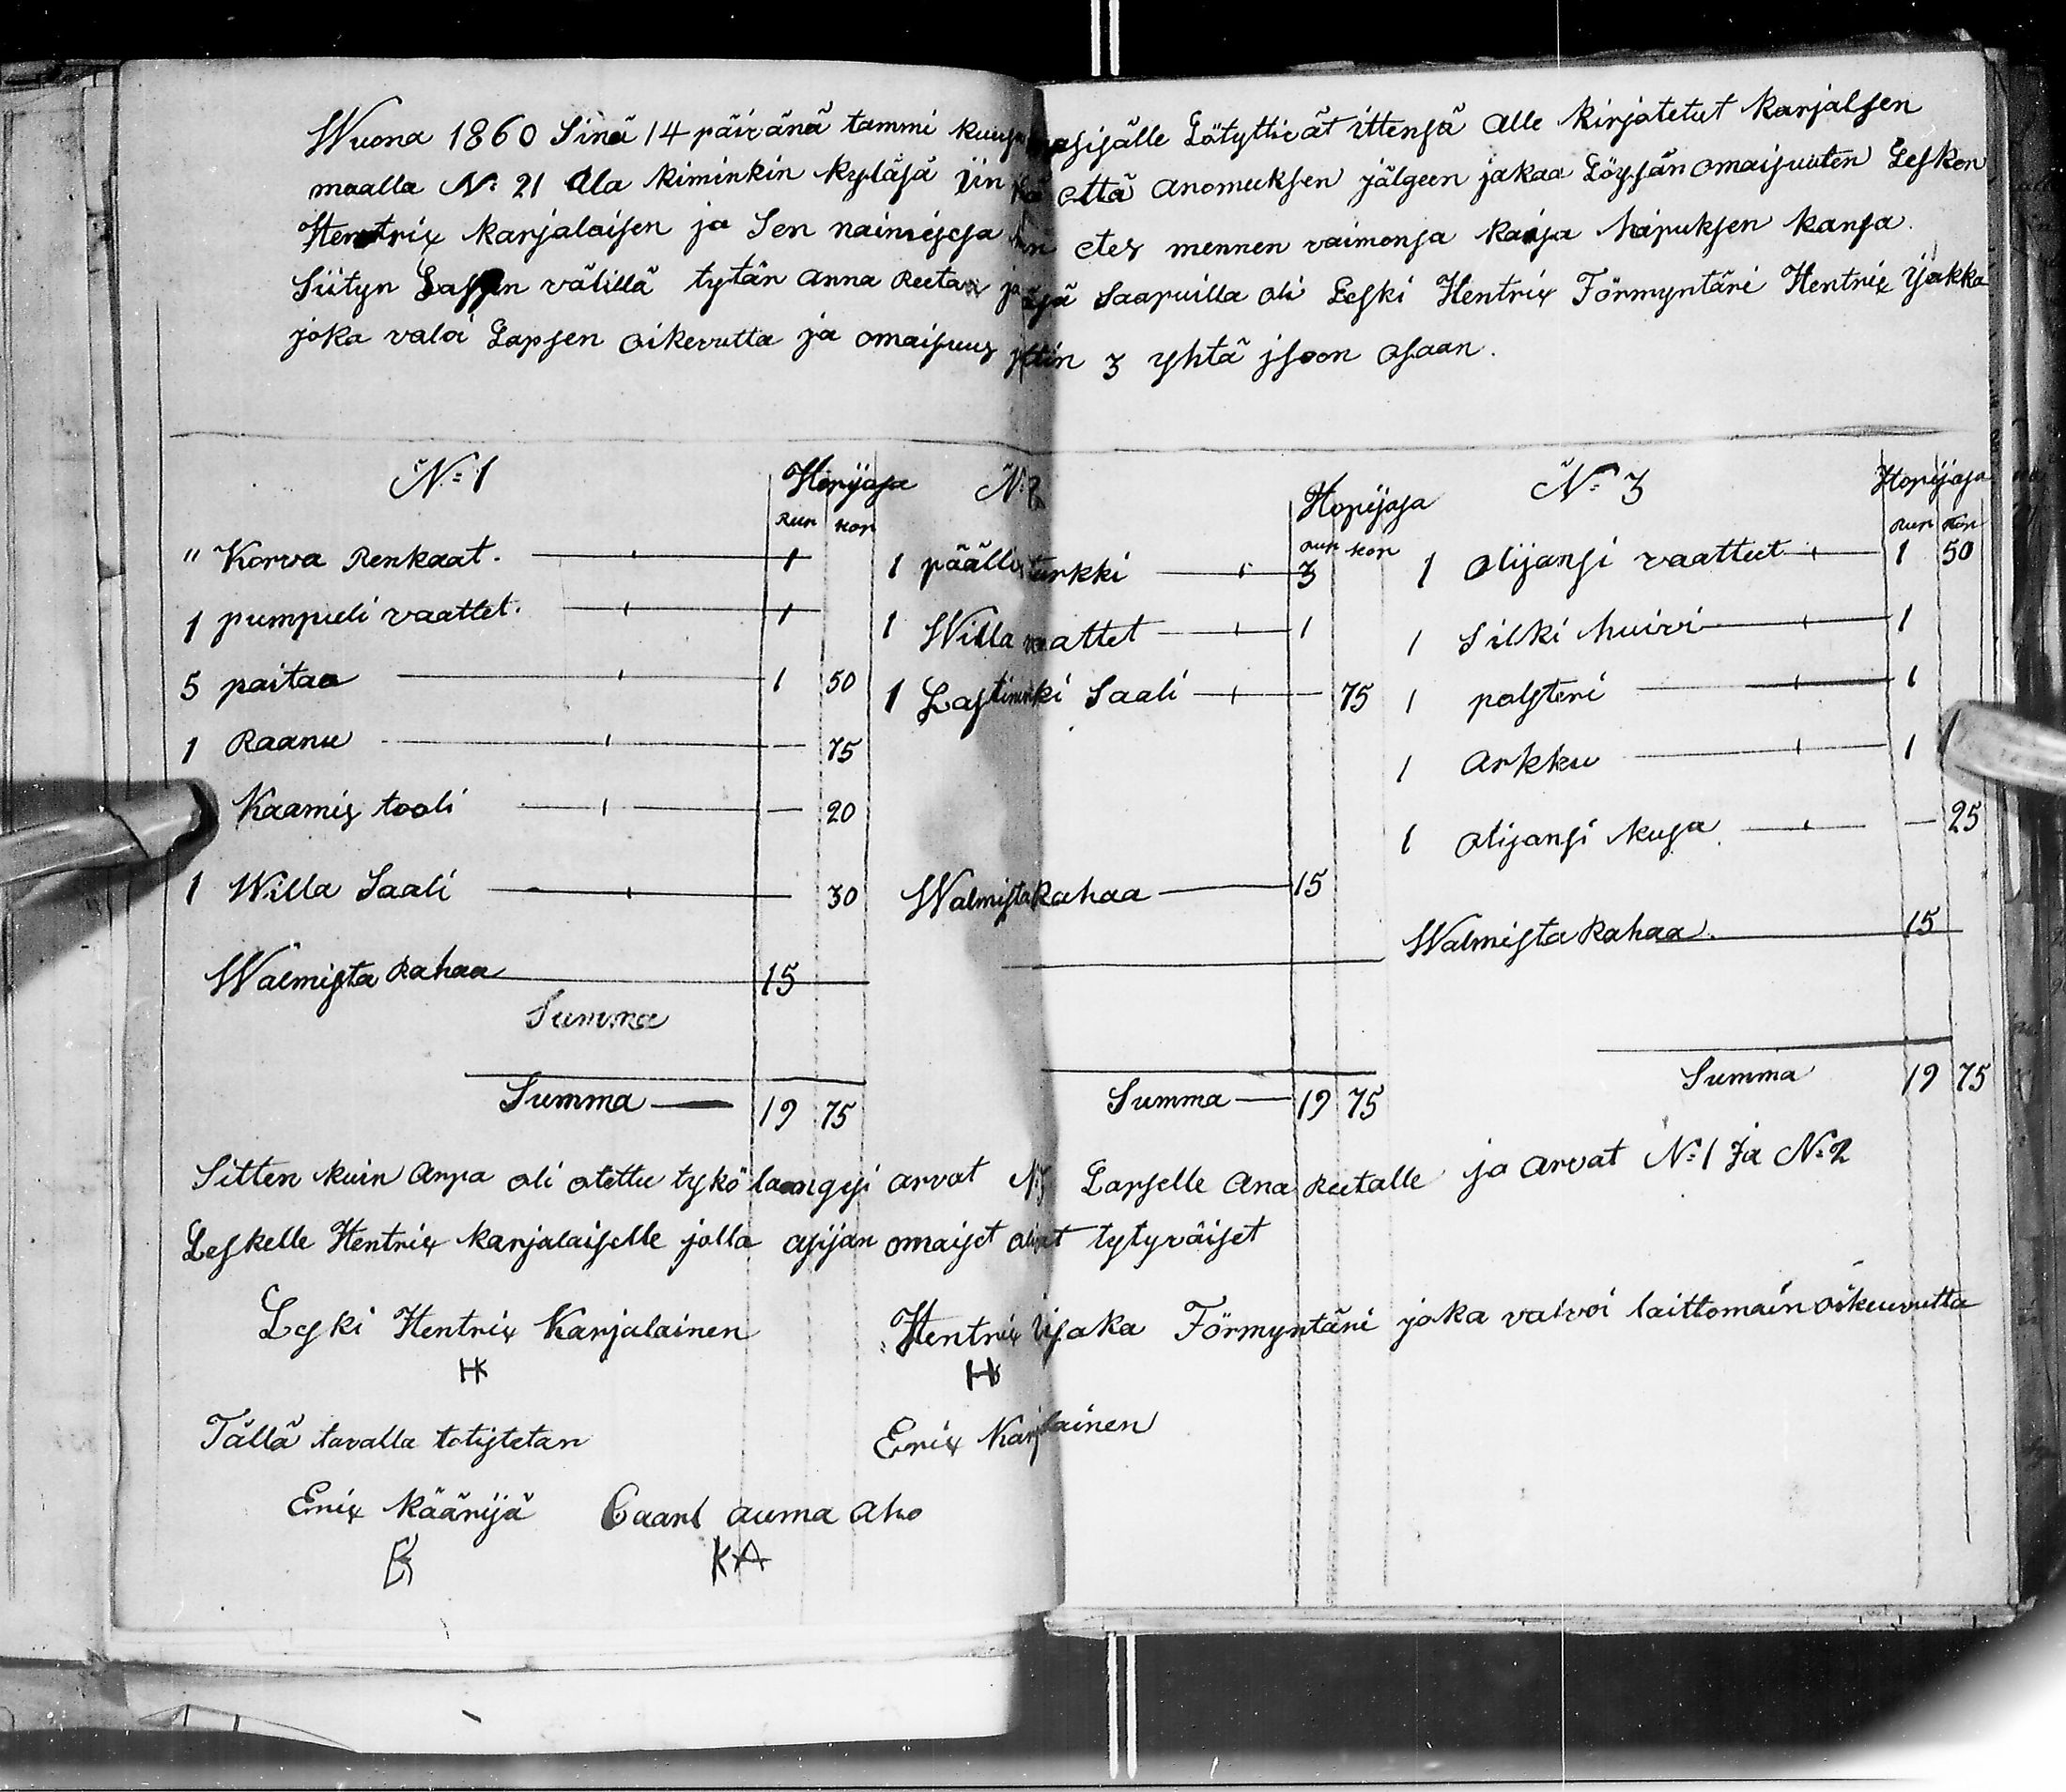 Wuona 1860 Sinä 14 päivänä tammi kuusa sisälle Löytyttivät ittensä Alle kirjatetut karjalsen
maalla N: 21 Ala kiminkin kyläsä että anomuksen jälgeen jakaa Löysän omaisuuten Lesken
Hentrix karjalaisen ja Sen naimisesa etes mennen vaimonsa kaisa hapuksen kansa.
Siityn Lapsen välillä tytän Anna Reetan Saapuilla oli Leski Hentrix Förmyntäri Hentrix ijakka
joka valoi Lapsen oikevutta ja omaisuus jttin 3 yhtä isoon osaan.
N:1
Hopijasa
Rup kop
" Korva Renkaat. 1
1 pumpuli vaattet. 1
5 paitaa 1 50
1 Raanu 75
Kaamis tooli 20
1 Willa Saali 30
Walmista Rahaa 15
Summa
Summa 19 75
N:2
Hopijasa
Rup kop
1 päällisturkki 3
1 Willa vaattet 1
1 Lastinki Saali 75
Walmista Rahaa 15
Summa 19 75
N: 3
Hopijasa
Rup kop
1 olijansi vaatteet 1 50
1 Silki huivi 1
1 polsteri 1
1 Arkku 1
1 olijansi kusa 25
Walmista Rahaa. 15
Summa 19 75
Sitten kuin Arpa oli otettu tykö laangesi arvat N:3 Lapselle Ana Reetalle ja arvat N:1 Ja N:2
Leskelle Hentrix karjalaiselle jolla asijan omaiset olivat tytyväiset
Leski Hentrix Karjalainen Hentrix ijaka Förmyntäri joka valvoi laittomain oikeuvutta
HK H
Tällä tavalla totistetan Erix Karjlainen
Erix käärijä Caarl auma aho
EK KA